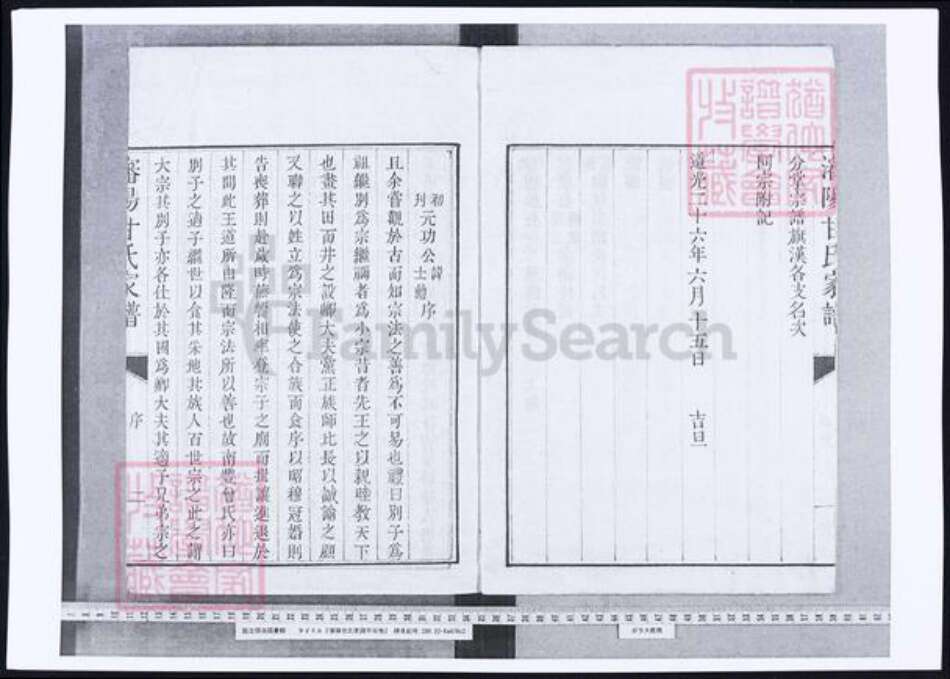 瀋陽甘氏家譜
分掌宗譜旗漢各支名次
何宗附記
道光二十六年六月十五日 吉旦
初刊元功公諱士 序
且余嘗觀於古而知宗法之善為不可易也禮曰別子為
祖繼別為宗繼禰者為小宗昔者先王之以親睦教天下
也畫其田而井之設鄉大夫黨正族師比長以誠諭之顧
又聯之以姓立為宗法使之合族而食序以昭穆冠婚則
告喪葬則赴歲時 相率登宗子之廟而揖讓進退於
其間此王道所由隆而宗法所以善也故南豐曾氏亦曰
別子之適子繼世以食其采地其族人百世宗之此之謂
大宗其別子亦各仕於其國為卿大夫其適子兄弟宗之
瀋陽甘氏家譜 序 二
猶他譜學會收藏
猶他家譜學會收藏
FamilySearch